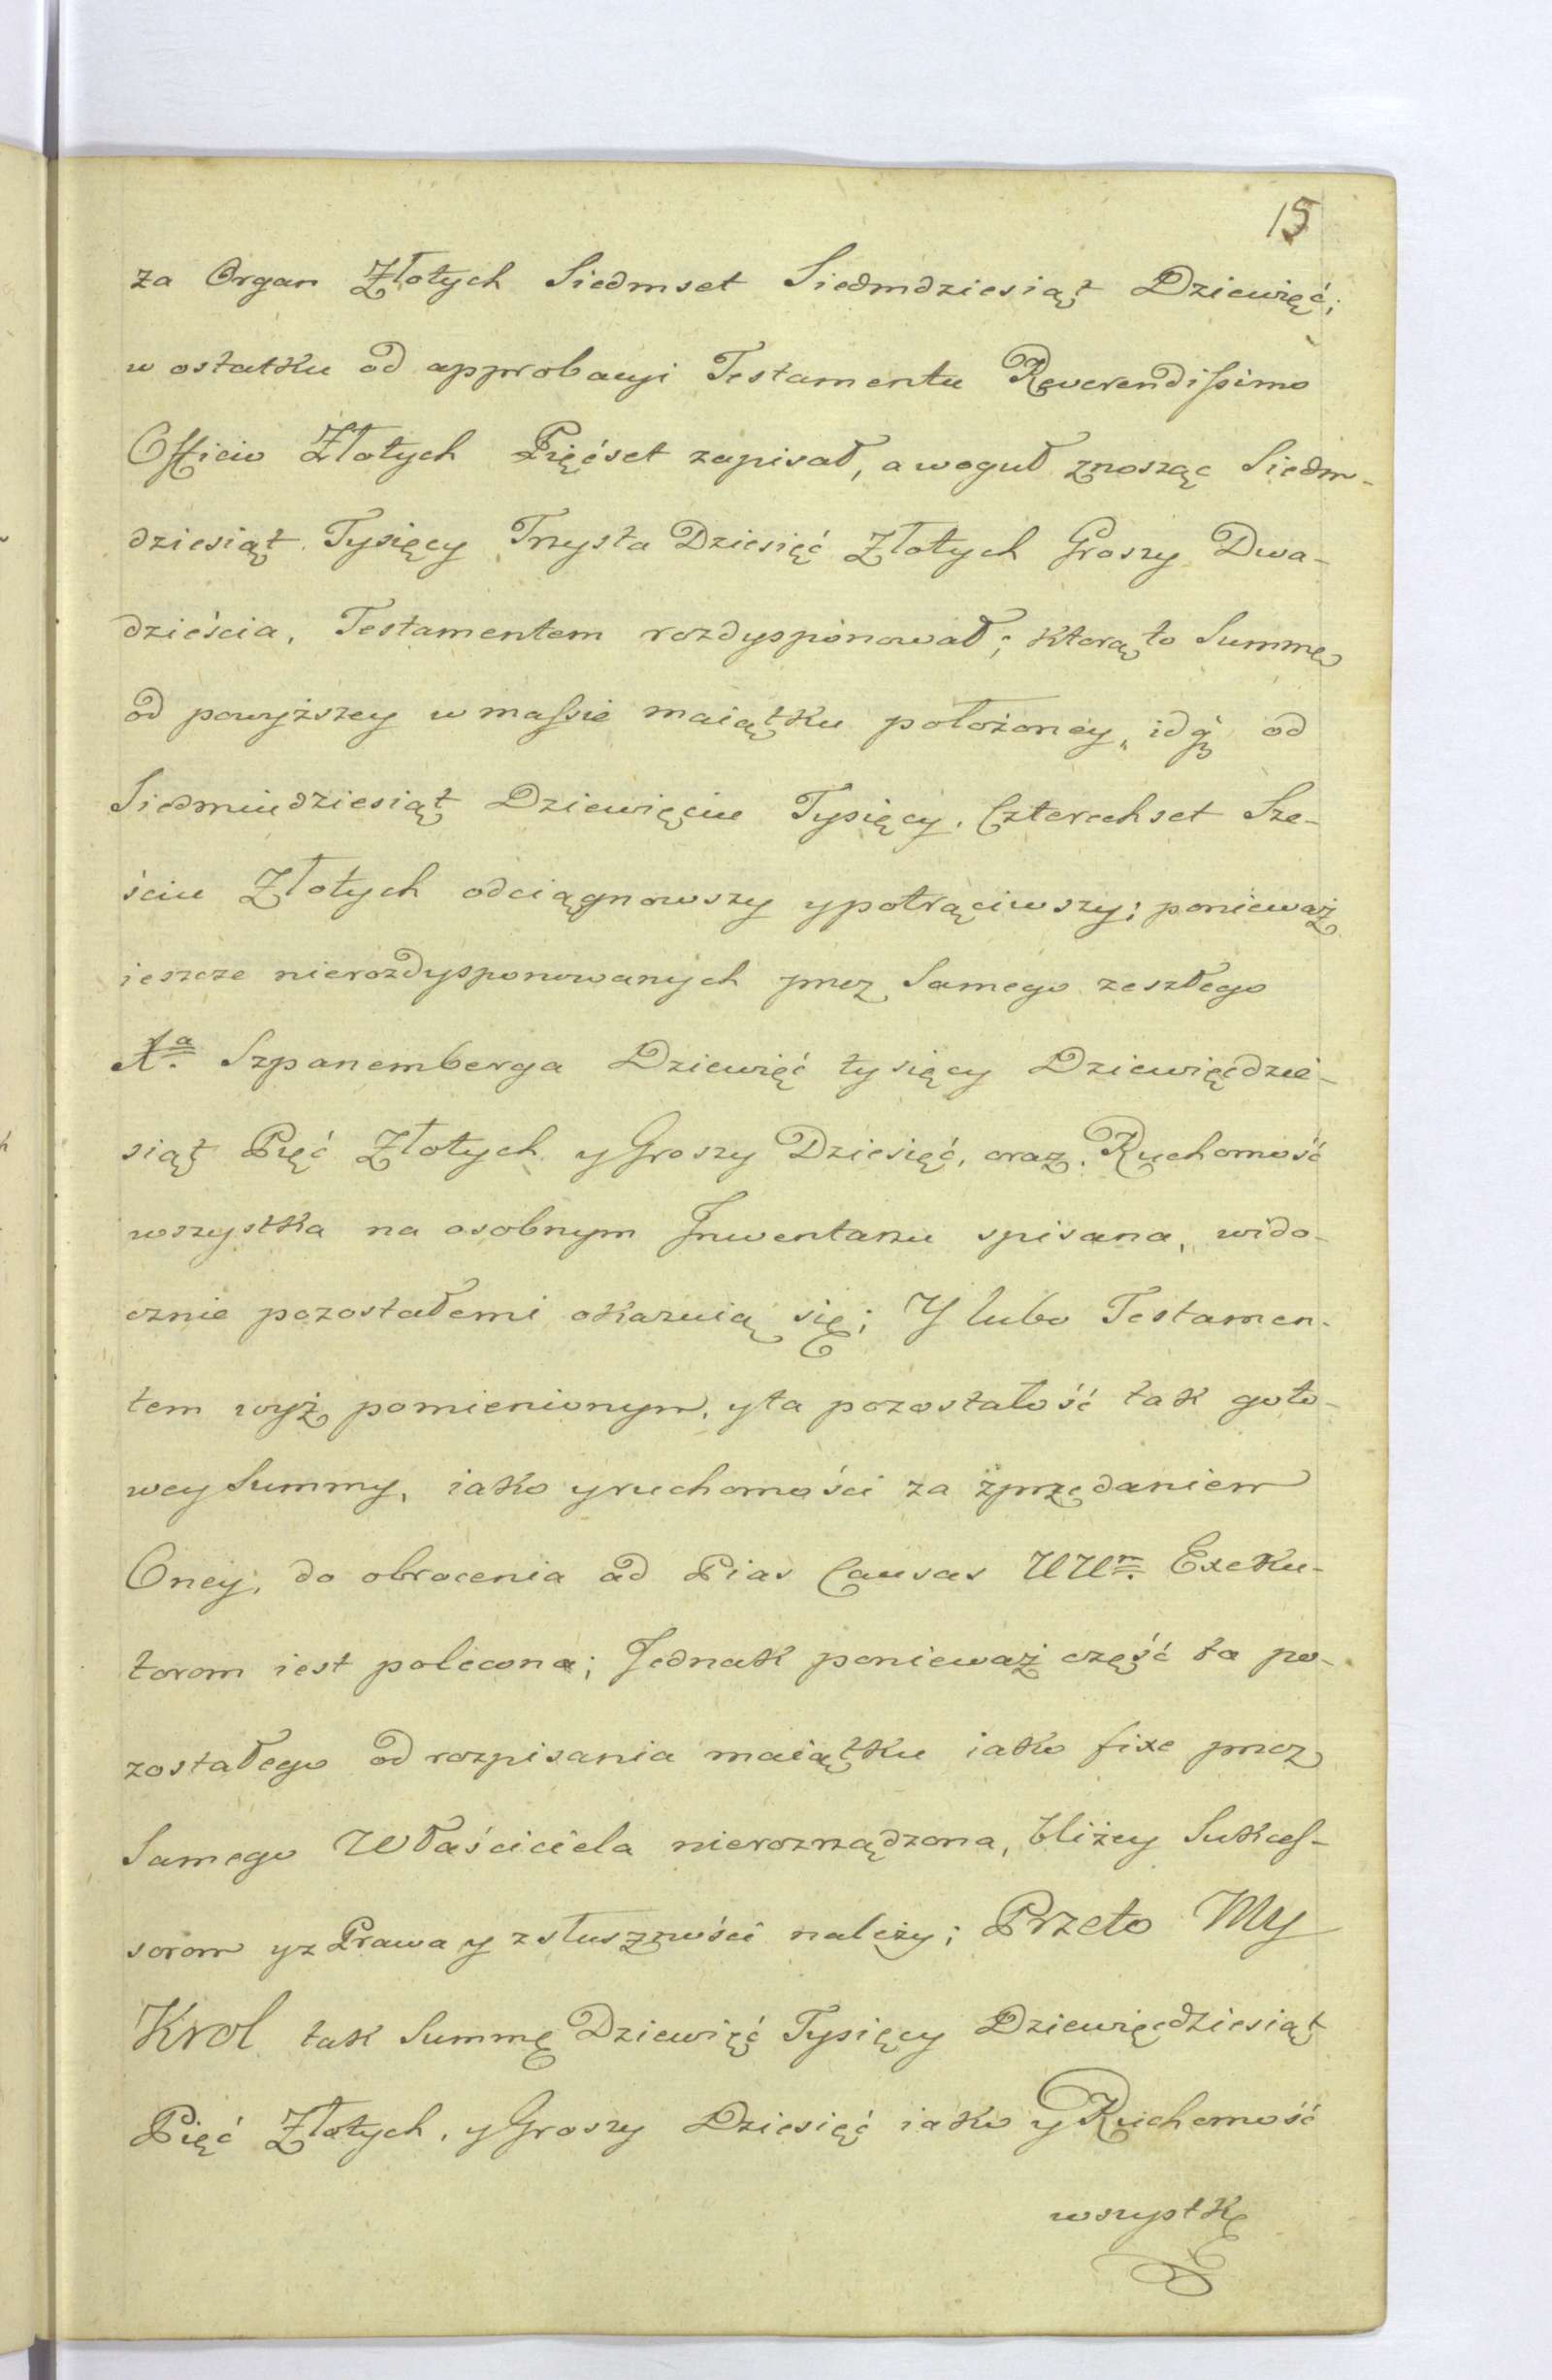 15
za Organ Złotych Siedmset Siedmdziesiąt Dziewięć;
w ostatku od approbacyi Testamentu Reverendißimo
Officio Złotych Pięćset zapisał, a woguł znosząc Siedm-
dziesiąt Tysięcy Trzysta Dziesięć Złotych Groszy Dwa-
dzieścia, Testamentem rozdysponował; ktorą to Summę
od powyższey w maßie maiątku położoney, id ę od
Siedmiudziesiąt Dziewięciu Tysięcy, Czterechset Sze-
ściu Złotych odciągnowszy y potrąciwszy; ponieważ
ieszcze nierozdysponowanych przez Samego zeszłego
Xa. Szpanemberga Dziewięć tysięcy Dziewięćdzie-
siąt Pięć Złotych y Groszy Dziesięć, oraz Ruchomość
wszystka na osobnym Inwentarzu spisana, wido-
cznie pozostałemi okazuią się; Y lubo Testamen-
tem wyż pomienionym, y ta pozostałość tak goto-
wey Summy, iako y ruchomości za zprzedaniem
Oney, do obrocenia ad Pias Causas UUm. Exeku-
torom iest polecona; Jednak ponieważ część ta po-
zostałego od rozpisania maiątku iako fixe przez
Samego Właściciela nierozrządzona, bliżey Sukceß-
sorom y z Prawa y z słuszności należy; Przeto My
Krol tak Summę Dziewięć Tysięcy Dziewięćdziesiąt
Pięć Złotych, y Groszy Dziesięć iako y Ruchomość
wszystkę